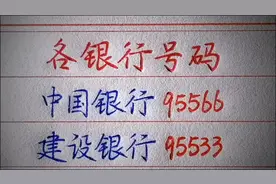 各银行号码
中国银行 95566
建设银行 95533